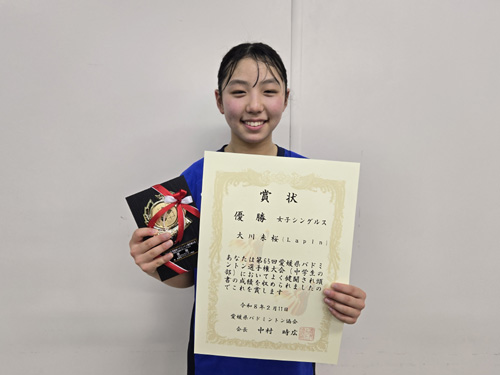 賞状
優勝 女子シングルス
大川未桜(Lapin)
あなたは第65回愛媛県バドミ
ントン選手権大会(中学生の
部)においてよく健闘され頭
書の成績を収められました
のでこれを賞します
令和8年2月11日
愛媛県バドミントン協会
会長 中村時広